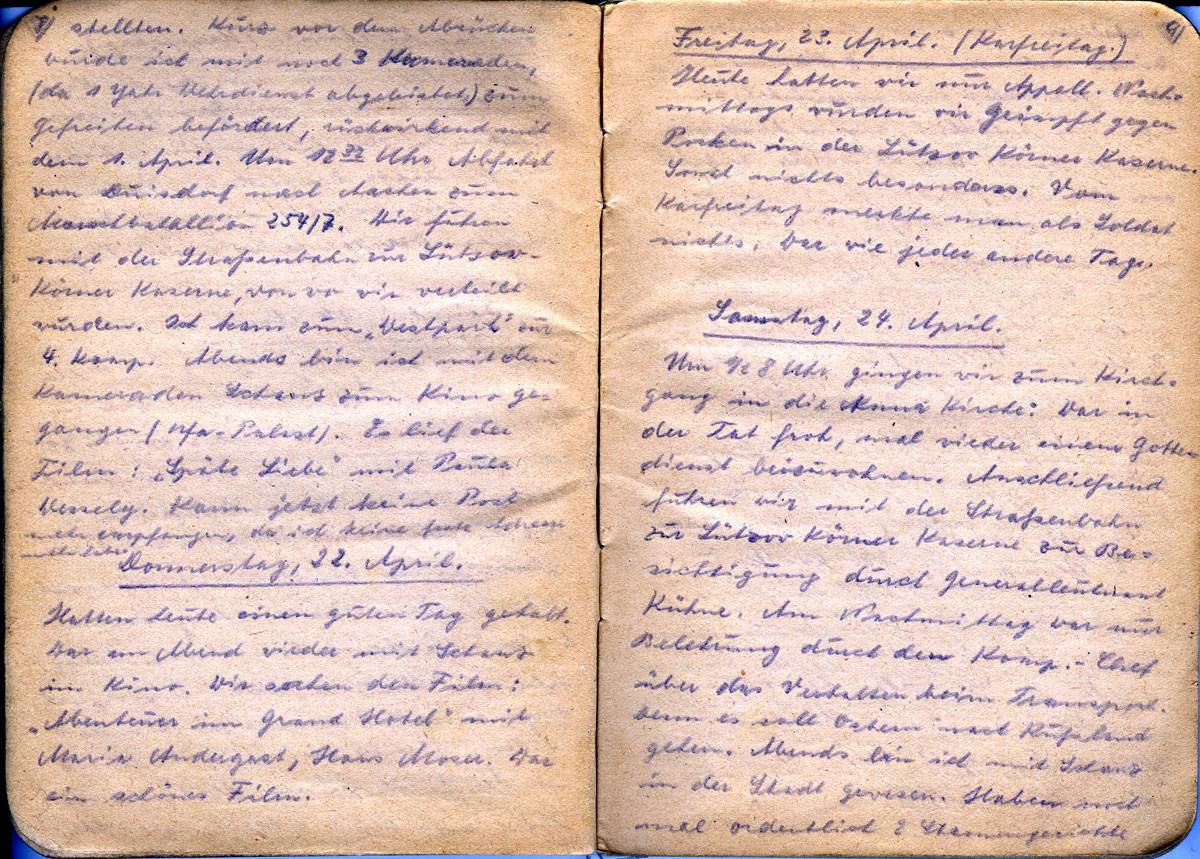 8/ stellten. Kurz vor dem Abrücken
wurde ich mit noch 3 Kameraden,
(da 1 Jahr Wehrdienst abgeleistet) zum
Gefreiten befördert, rückwirkend mit
dem 1. April. Um 12 32 Uhr Abfahrt
von Duisdorf nach Aachen zum
Marschbatallion 254/7. Wir fuhren
mit der Straßenbahn zur Lützow-
Körner Kaserne, von wo wir verteilt
wurden. Ich kam zum „Westpark" zur
4. Komp. Abends bin ich mit dem
Kameraden Schans zum Kino ge-
gangen (Ufa-Palast). Es lief der
Film: „Späte Liebe" mit Paula
Wessely. Kann jetzt keine Post
mehr empfangen, da ich keine feste Adresse
mehr habe.
Donnerstag, 22. April.
Hatten heute einen guten Tag gehabt.
War am Abend wieder mit Schans
im Kino. Wir sahen den Film:
„Abenteuer im Grand Hotel" mit
Maria Andergast, Hans Moser. War
ein schönes Film.
9/
Freitag, 23. April. (Karfreitag.)
Heute hatten wir nur Appell. Nach-
mittags wurden wir Geimpft gegen
Pocken in der Lützow Körner Kaserne.
Sonst nichts besonders. Vom
Karfreitag merkte man als Soldat
nichts. War wie jeder andere Tag.
Samstag, 24. April.
Um 1/2 8 Uhr gingen wir zum Kirch-
gang in die Anna Kirche. War in
der Tat froh, mal wieder einem Gottes
dienst beizuwohnen. Anschließend
fuhren wir mit der Straßenbahn
zur Lützow Körner Kaserne zur Be-
sichtigung durch Generalleutnant
Kühne. Am Nachmittag war nur
Belehrung durch den Komp.-Chef
über das Verhalten beim Transport.
denn es soll Ostern nach Rußland
gehen. Abends bin ich mit Schans
in der Stadt gewesen. Haben noch
mal ordentlich 2 Stammgerichte